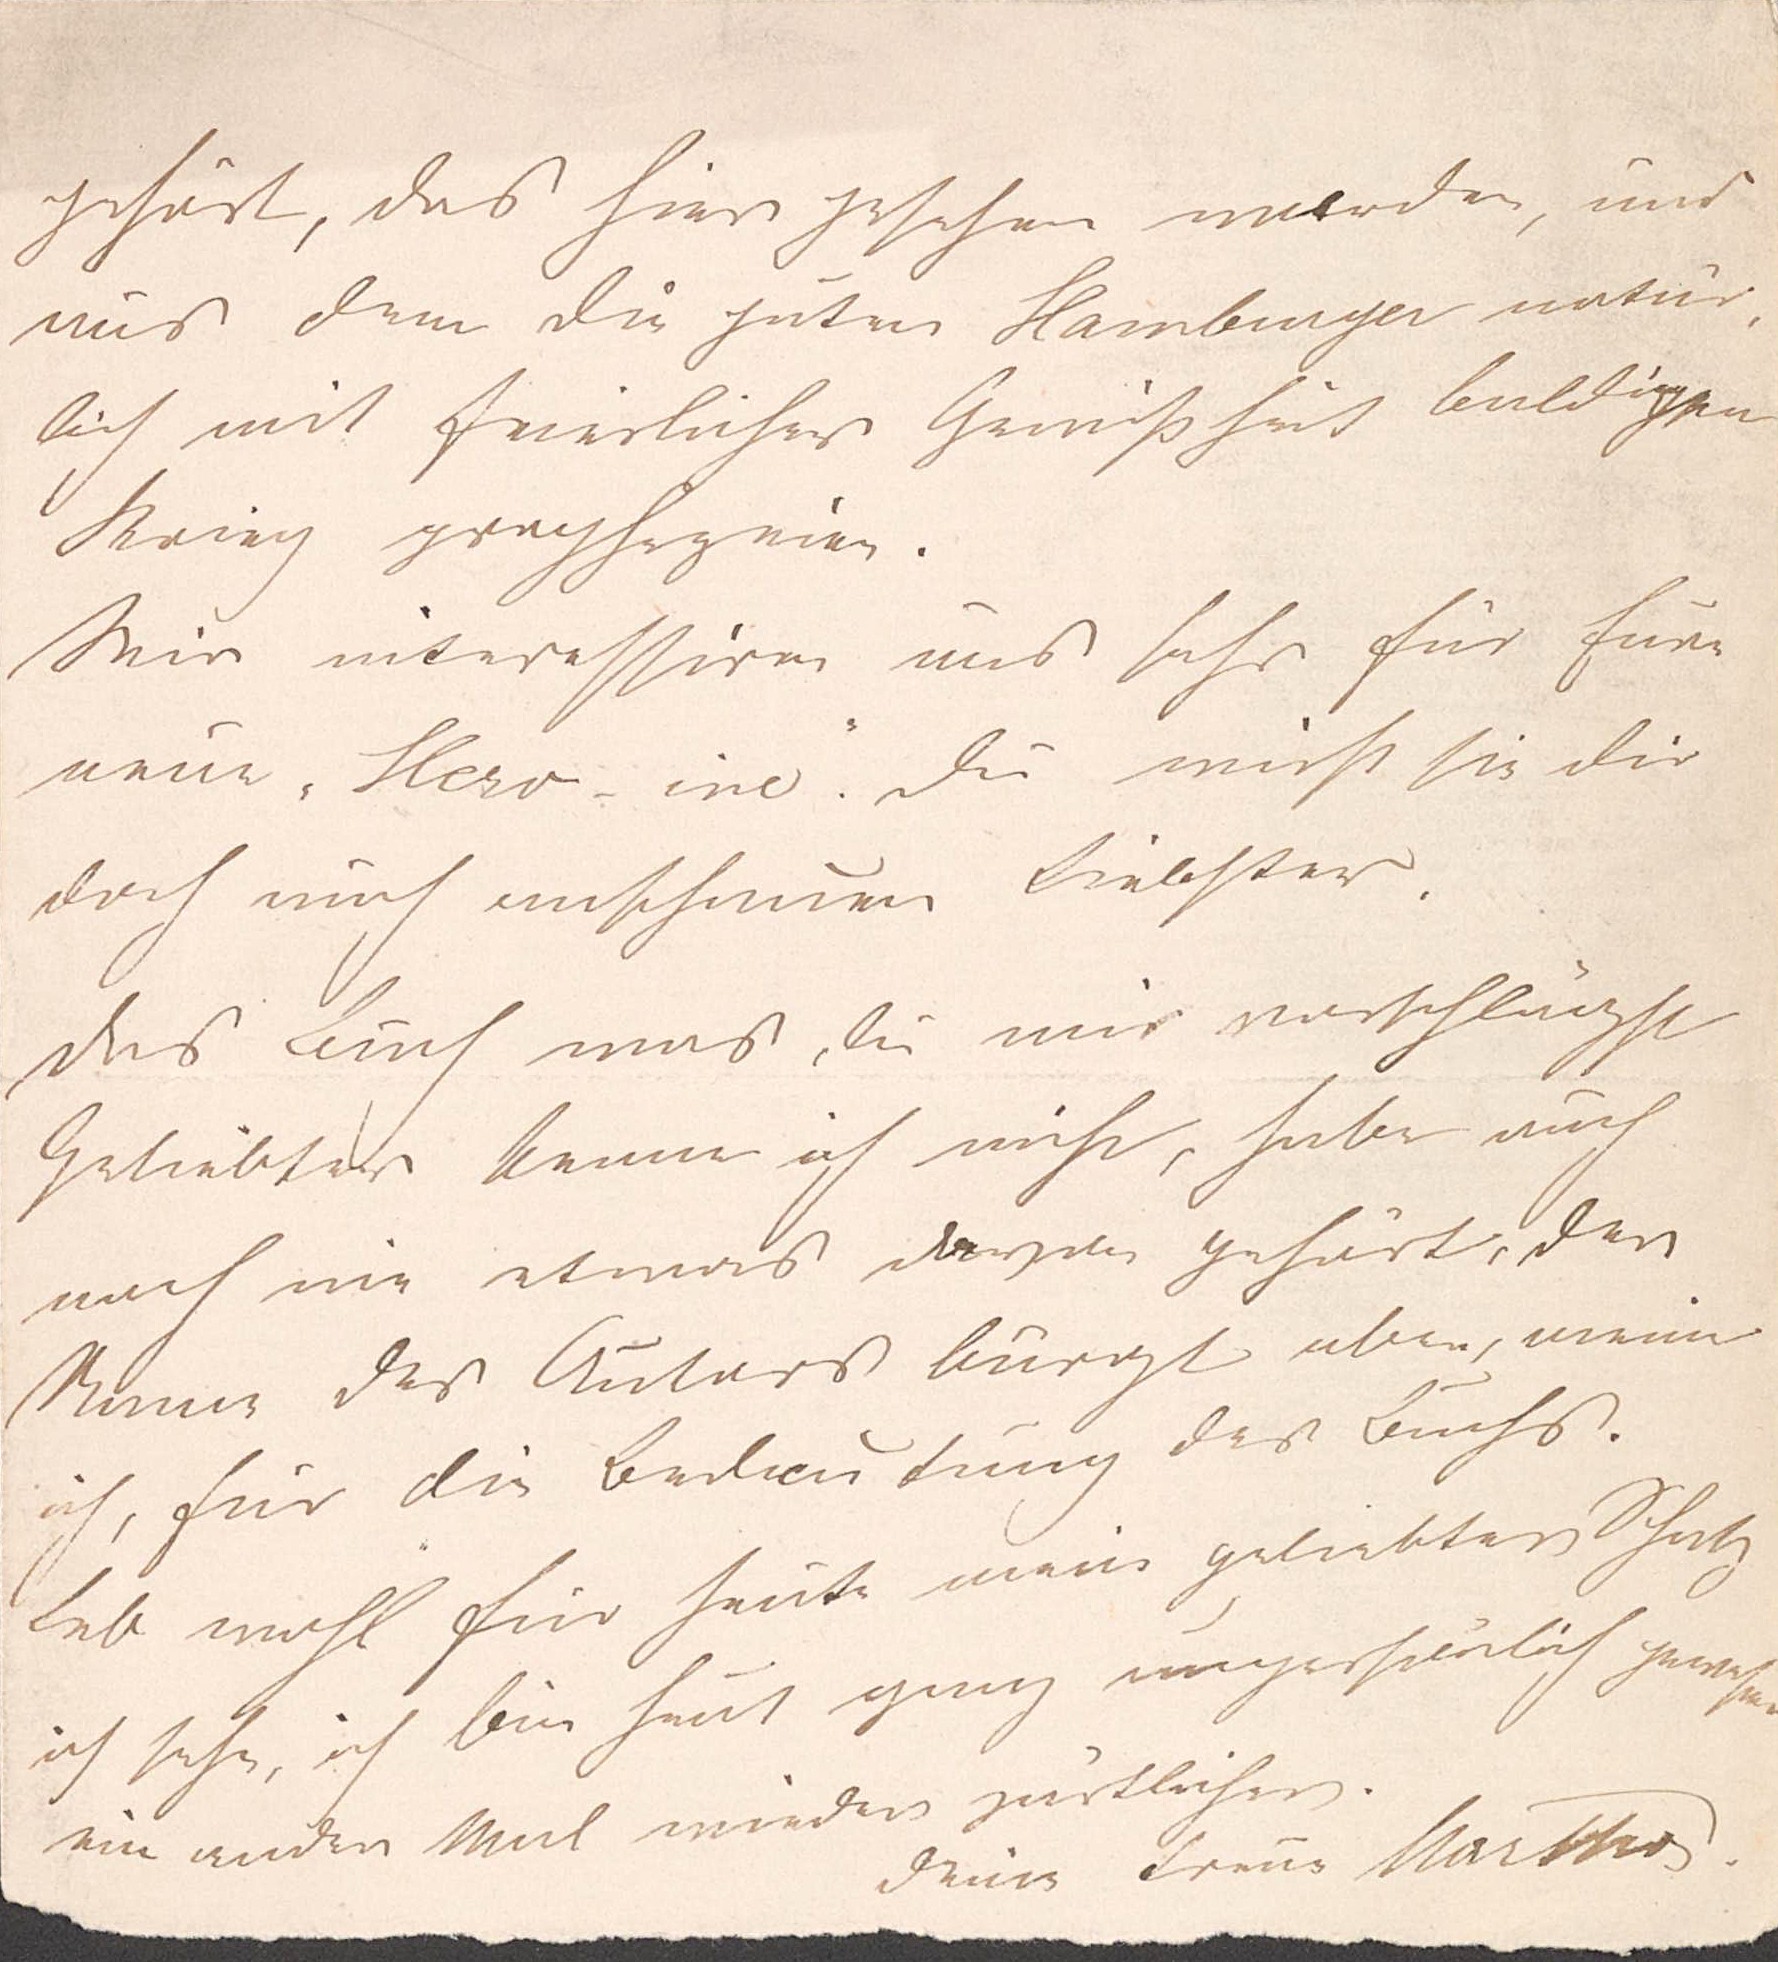 gehört, das hier gesehen worden, und
aus dem die guten Hamburger natür-
lich mit feierlicher Gewißheit baldigen
Krieg prophezeien.
Wir interessiren uns sehr für Eure
neue „Hero-ine“. Du mußt sie dir
doch auch anschauen Liebster.
Das Buch was du mir vorschlägst
Geliebter kenne ich nicht, habe auch
noch nie etwas davon gehört, der
Name des Autors bürgt aber, meine
ich, für die Bedeutung des Buchs.
Leb wohl für heute mein geliebter Schatz
ich sehe, ich bin heut ganz unpersönlich gewesen
ein ander Mal wieder zärtlicher.
Deine treue Martha.